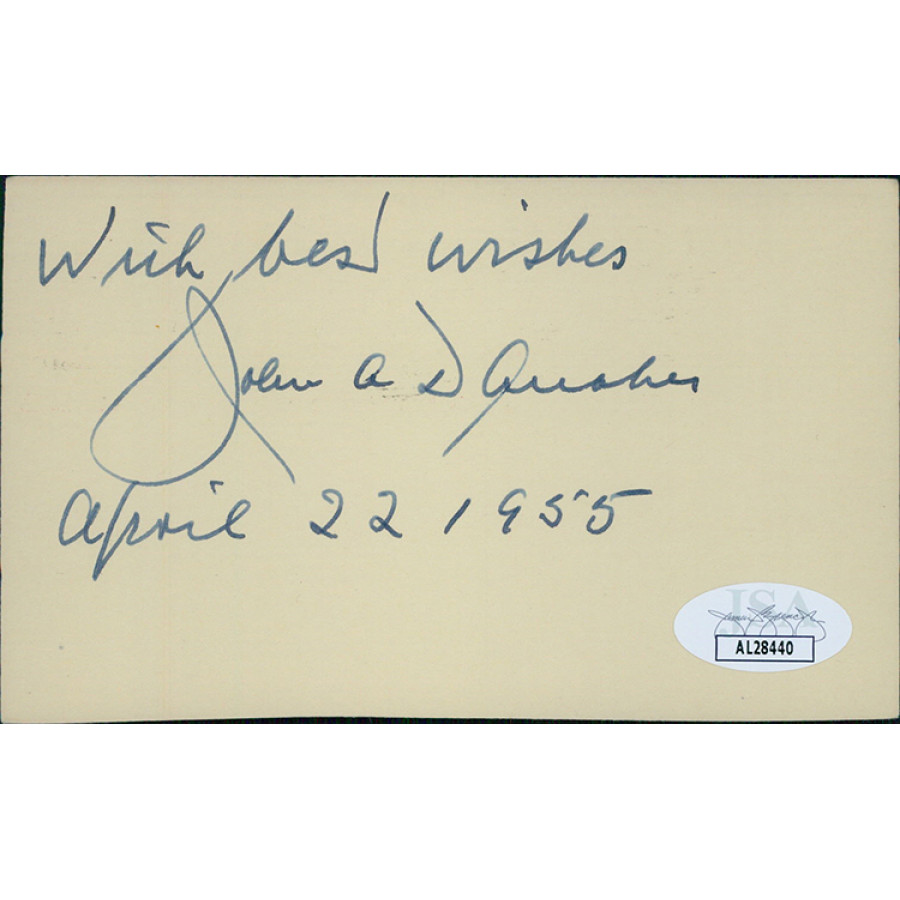 With best wishes
John A Danaher
April 22 1955
JSA
AL28440